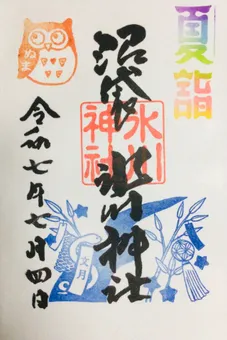 夏詣
沼袋 氷川神社
氷川
神社
令和七年七月四日
ぬま
文月